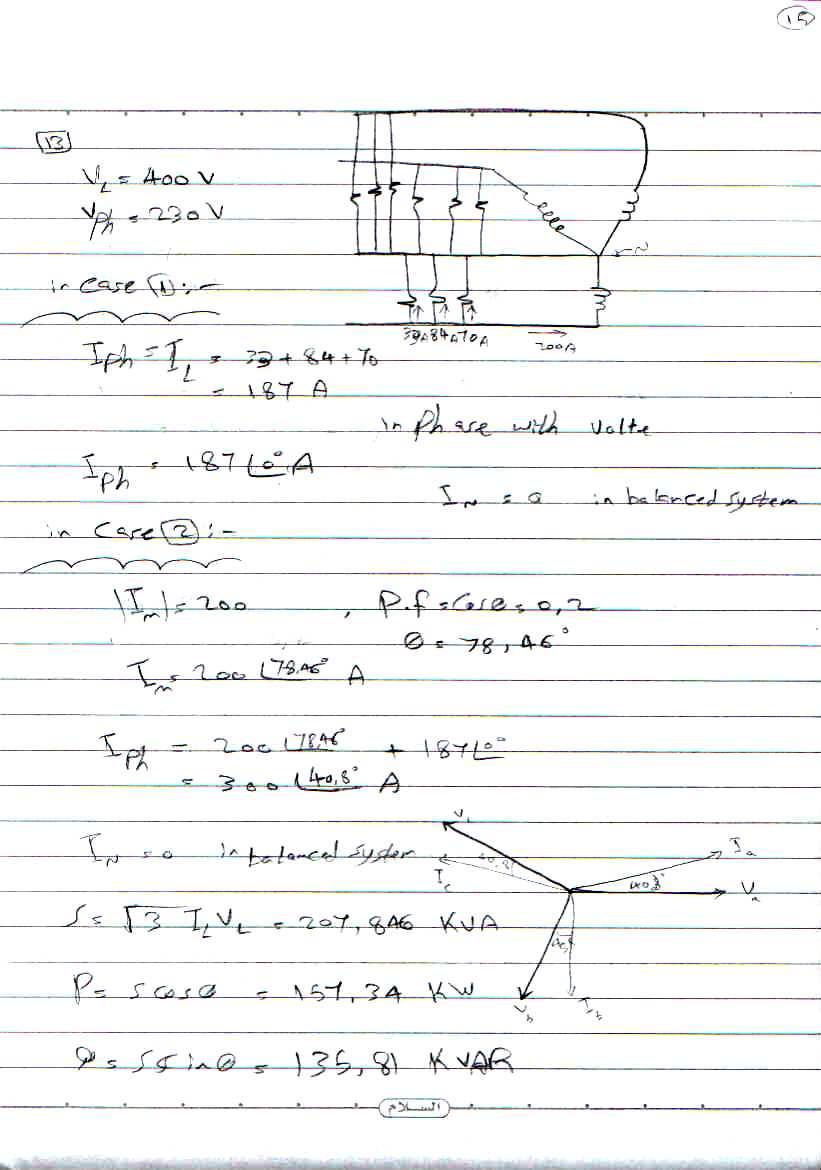 15
13
V_L = 400 V
V_ph = 230 V
N
in case 1 :-
33A 84A 70A 200A
I_ph = I_L = 33 + 84 + 70
= 187 A
in phase with volte
I_ph = 187 ∠0° A
I_N = 0 in balanced system
in case 2 :-
|I_m| = 200 , P.f = cosθ = 0,2
θ = 78,46°
I_m = 200 ∠78,46° A
I_ph = 200 ∠78,46° + 187 ∠0°
= 300 ∠40,8° A
I_N = 0 in balanced system
V_c I_a
I_c 40,8° 40,8° V_a
S = √3 I_L V_L = 207,846 KVA
P = S cosθ = 157,34 KW
V_b I_b
Q = S sinθ = 135,81 KVAR
السلام